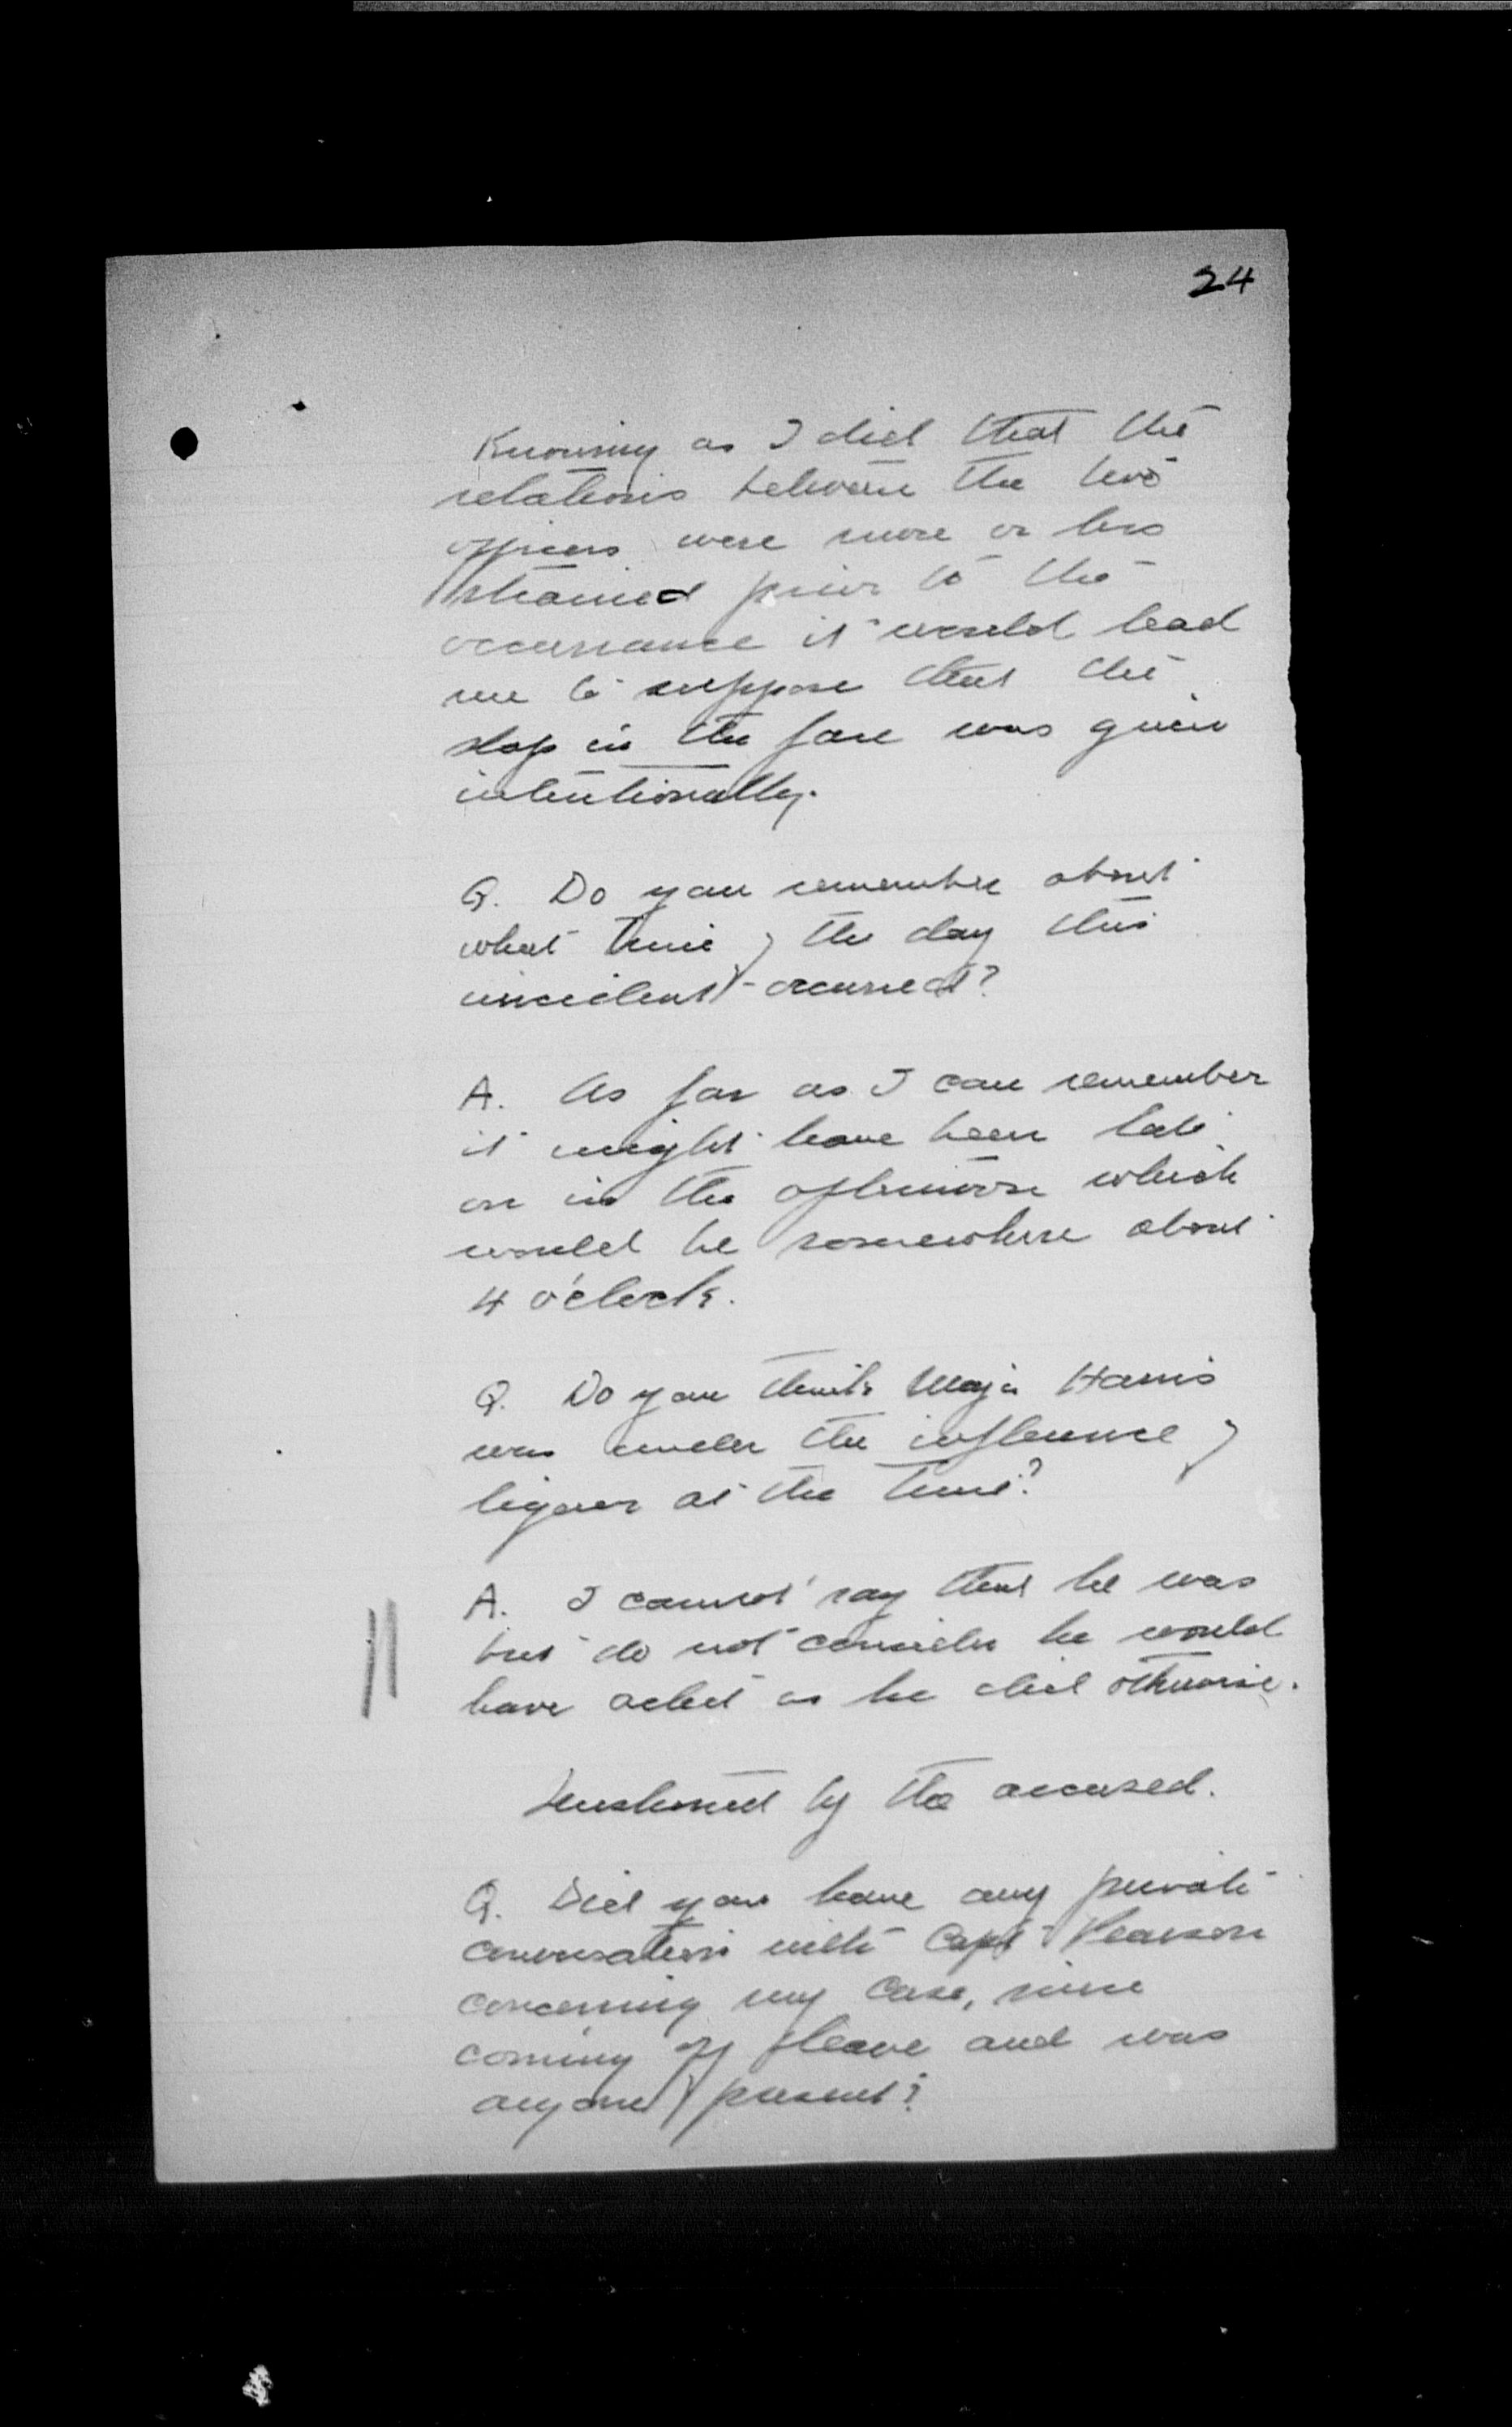 24
Knowing as I did that the
relations between the two
officers were more or less
strained prior to the
occurrance it would lead
me to suppose that the
slap in the face was given
intentionally.
Q. Do you remember about
what time of the day this
incident occurred?
A. As far as I can remember
it might have been late
on in the afternoon which
would be somewhere about
4 o'clock.
Q. Do you think Major Harris
was under the influence of
liquor at the time?
A. I cannot say that he was
but do not consider he would
have acted as he did otherwise.
Questioned by the accused.
Q. Did you have any private
conversation with Capt Pearson
concerning my case, since
coming off leave and was
anyone present?